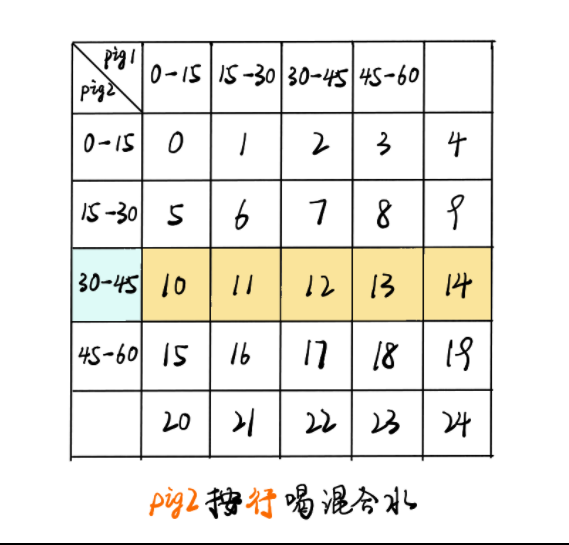 pig1
pig2
0-15 15-30 30-45 45-60
0-15 0 1 2 3 4
15-30 5 6 7 8 9
30-45 10 11 12 13 14
45-60 15 16 17 18 19
20 21 22 23 24
pig2 按行喝混合水